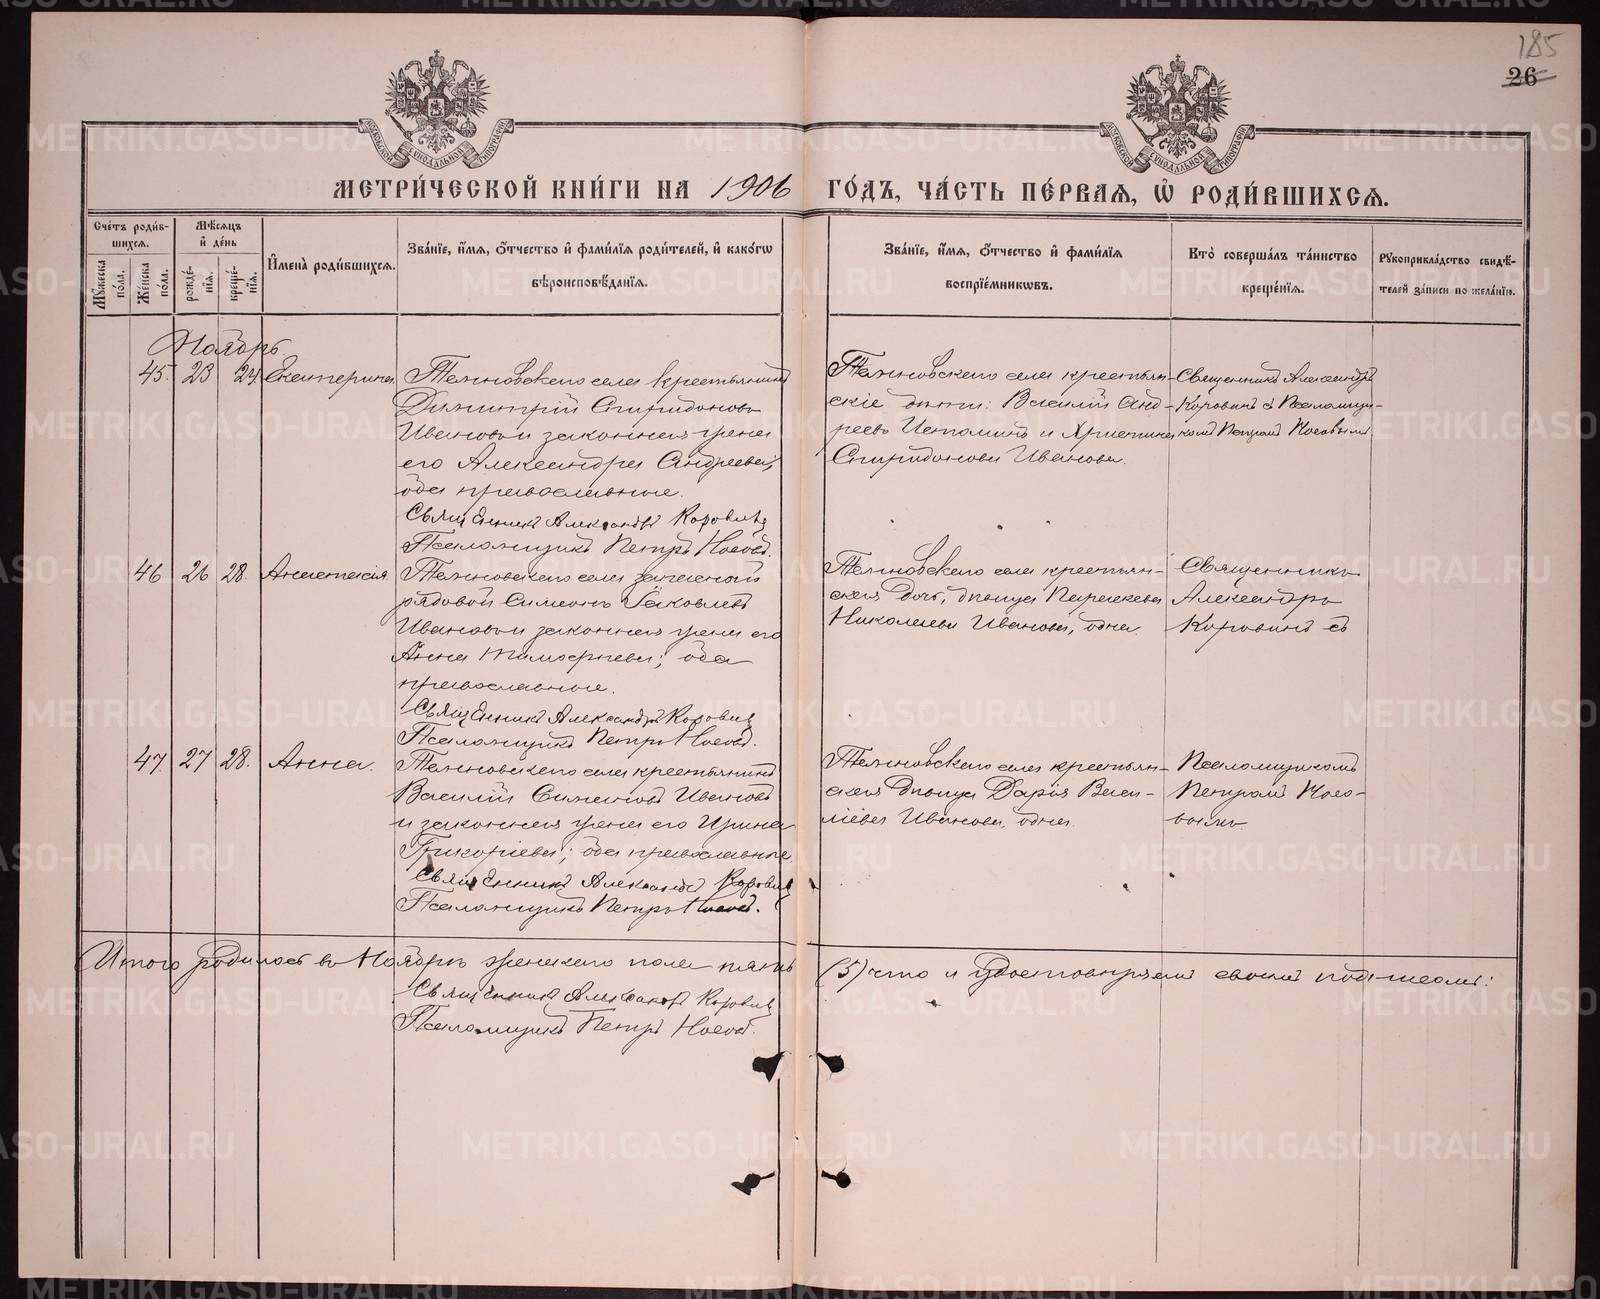 185
26
МЕТРИ́ЧЕСКОЙ КНИ́ГИ НА 1906 ГО́ДЪ, ЧА́СТЬ ПЕ́РВАѦ, Ѡ҆ РОДИ́ВШИХСѦ.
Сче́тъ роди́в-
шихсѧ.
Мѣ́сѧцъ
и҆ де́нь
Мꙋ́жеска по́ла.
Же́нска по́ла.
рожде́-
нїѧ.
креще́-
нїѧ.
И҆мена̀ роди́вшихсѧ.
Зва́нїе, и҆́мѧ, о҆́тчество и҆ фами́лїѧ роди́телей, и҆ како́гѡ
вѣроисповѣ́данїѧ.
Зва́нїе, и҆́мѧ, о҆́тчество и҆ фами́лїѧ
воспрїе́мникѡвъ.
Кто̀ соверша́лъ та́инство
креще́нїѧ.
Рꙋкоприкла́дство свидѣ́-
телей за́писи по жела́нїю.
Ноябрь
45. 23 24 Екатерина
Темновскаго села крестьянинъ
Димитрій Спиридоновъ
Ивановъ и законная жена
его Александра Андреева;
оба православные.
Священникъ Александръ Коровинъ
Псаломщикъ Петръ Носовъ.
Темновскаго села крестьян-
скіе дѣти: Василій Анд-
реевъ Истоминъ и Христина
Спиридонова Иванова.
Священникъ Александръ
Коровинъ съ Псаломщи-
комъ Петромъ Носовымъ
46 26 28. Анастасія.
Темновскаго села запасный
рядовой Симеонъ Іаковлевъ
Ивановъ и законная жена его
Анна Тимофеева; оба
православные.
Священникъ Александръ Коровинъ
Псаломщикъ Петръ Носовъ.
Темновскаго села крестьян-
ская дочь, дѣвица Параскева
Николаева Иванова, одна
Священникъ
Александръ
Коровинъ съ
47. 27 28. Анна.
Темновскаго села крестьянинъ
Василій Симеоновъ Ивановъ
и законная жена его Ирина
Григоріева; оба православные.
Священникъ Александръ Коровинъ
Псаломщикъ Петръ Носовъ.
Темновскаго села крестьян-
ская дѣвица Дарія Васи-
ліева Иванова, одна.
Псаломщикомъ
Петромъ Носо-
вымъ.
Итого родилось въ Ноябрѣ женскаго пола пять (5) что и удостовѣряемъ своимъ подписомъ:
Священникъ Александръ Коровинъ
Псаломщикъ Петръ Носовъ.
METRIKI.GASO-URAL.RU